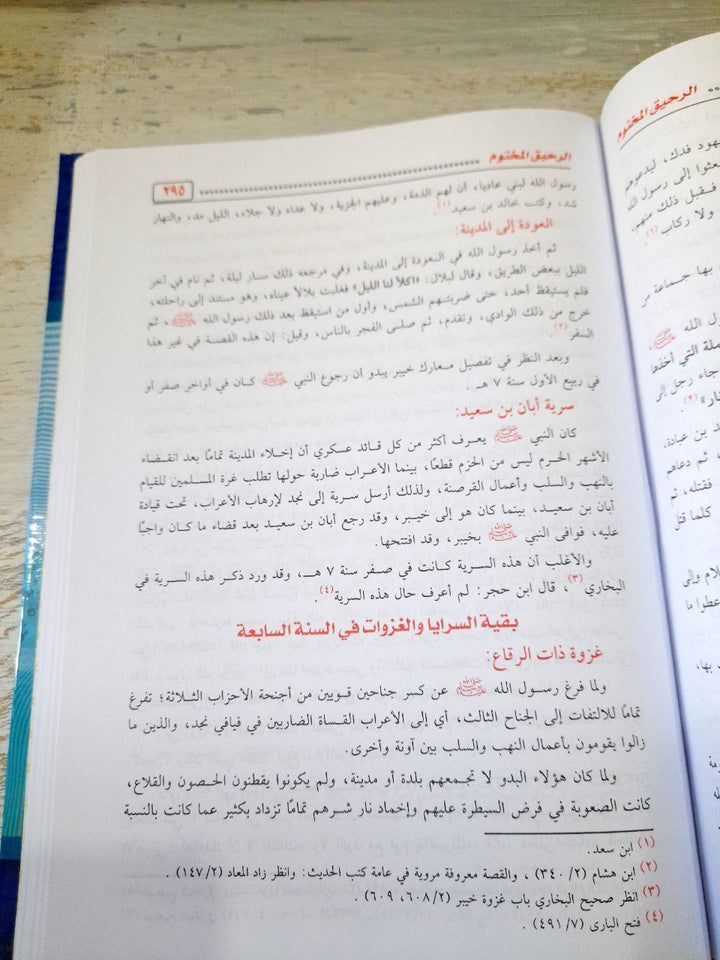 الرحيق المختوم
٢٩٥
رسول الله لبني عاديا، أن لهم الذمة، وعليهم الجزية، ولا عداء ولا جلاء، الليل مد، والنهار
شد، وكتب خالد بن سعيد(١).
العودة إلى المدينة:
ثم أخذ رسول الله في العودة إلى المدينة، وفي مرجعه ذلك سار ليلة، ثم نام في آخر
الليل ببعض الطريق، وقال لبلال: «اكلأ لنا الليل» فغلبت بلالاً عيناه، وهو مستند إلى راحلته،
فلم يستيقظ أحد، حتى ضربتهم الشمس، وأول من استيقظ بعد ذلك رسول الله ﷺ، ثم
خرج من ذلك الوادي، وتقدم، ثم صلى الفجر بالناس، وقيل: إن هذه القصة في غير هذا
السفر(٢).
وبعد النظر في تفصيل معارك خيبر يبدو أن رجوع النبي ﷺ كان في أواخر صفر أو
في ربيع الأول سنة ٧ هـ.
سرية أبان بن سعيد:
كان النبي ﷺ يعرف أكثر من كل قائد عسكري أن إخلاء المدينة تمامًا بعد انقضاء
الأشهر الحرم ليس من الحزم قطعًا، بينما الأعراب ضاربة حولها تطلب غرة المسلمين للقيام
بالنهب والسلب وأعمال القرصنة، ولذلك أرسل سرية إلى نجد لإرهاب الأعراب، تحت قيادة
أبان بن سعيد، بينما كان هو إلى خيبر، وقد رجع أبان بن سعيد بعد قضاء ما كان واجبًا
عليه، فوافى النبي ﷺ بخيبر، وقد افتتحها.
والأغلب أن هذه السرية كانت في صفر سنة ٧ هـ، وقد ورد ذكر هذه السرية في
البخاري(٣)، قال ابن حجر: لم أعرف حال هذه السرية(٤).
بقية السرايا والغزوات في السنة السابعة
غزوة ذات الرقاع:
ولما فرغ رسول الله ﷺ عن كسر جناحين قويين من أجنحة الأحزاب الثلاثة؛ تفرغ
تمامًا للالتفات إلى الجناح الثالث، أي إلى الأعراب القساة الضاربين في فيافي نجد، والذين ما
زالوا يقومون بأعمال النهب والسلب بين آونة وأخرى.
ولما كان هؤلاء البدو لا تجمعهم بلدة أو مدينة، ولم يكونوا يقطنون الحصون والقلاع،
كانت الصعوبة في فرض السيطرة عليهم وإخماد نار شرهم تمامًا تزداد بكثير عما كانت بالنسبة
(١) ابن سعد.
(٢) ابن هشام (٢/ ٣٤٠) ، والقصة معروفة مروية في عامة كتب الحديث: وانظر زاد المعاد (٢/١٤٧) .
(٣) انظر صحيح البخاري باب غزوة خيبر (٢/ ٦٠٨، ٦٠٩) .
(٤) فتح البارى (٧/ ٤٩١) .
الرحيق المختوم
يهود فدك، ليدعوهم
بعثوا إلى رسول الله
فقبل ذلك منهم،
ولا ركاب(١)
بها جماعة من
ول الله ﷺ
ملة التي أخذها
جاء رجل إلى
نار»(٢).
د بن عبادة،
، ثم دعاهم
فقتله، ثم
كلما قتل
لام وإلى
عطوا ما
بها،